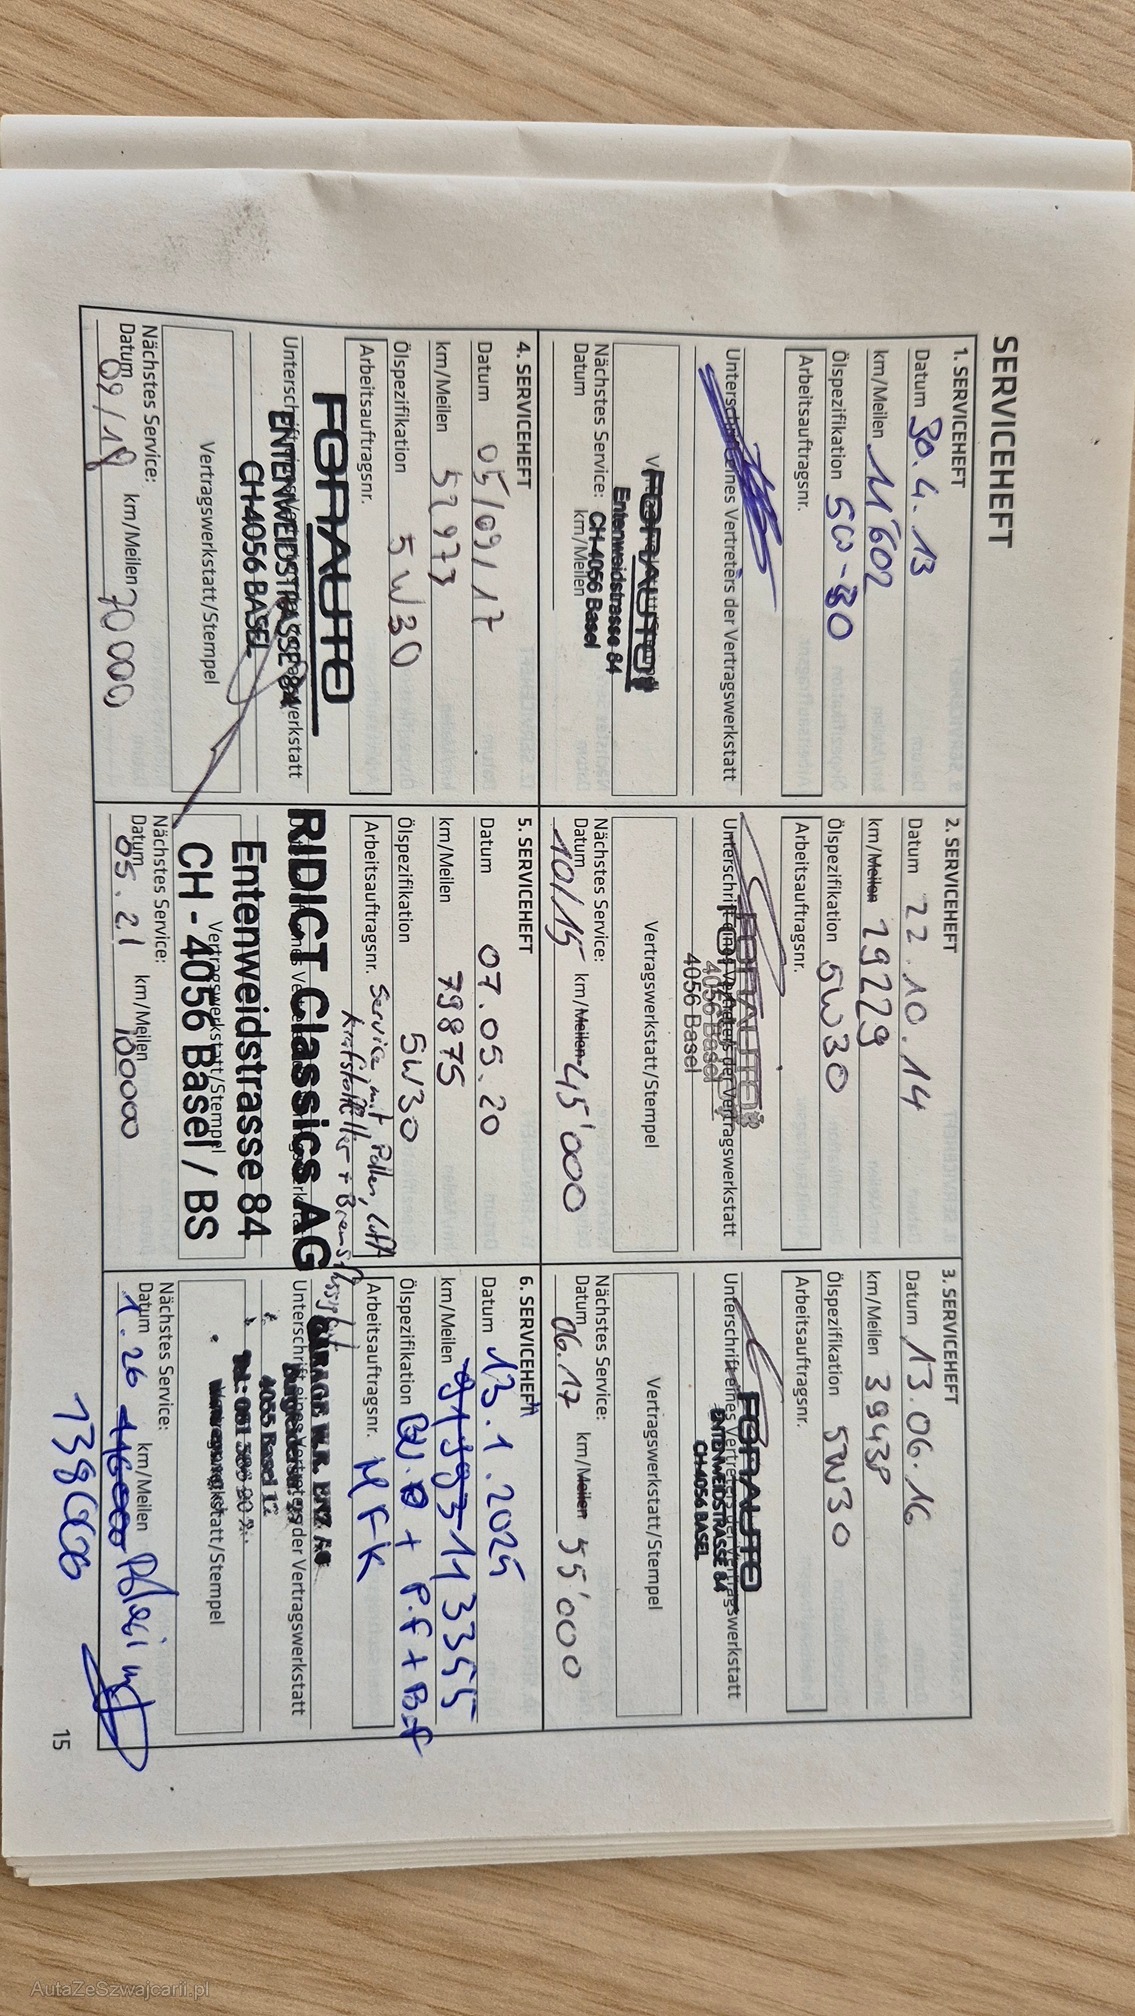 SERVICEHEFT
1. SERVICEHEFT
Datum 30.4.13
km/Meilen 11'602
Ölspezifikation 5W-30
Arbeitsauftragsnr.
Unterschrift eines Vertreters der Vertragswerkstatt
FORAUTO
Entenweidstrasse 84
CH-4056 Basel
Nächstes Service:
Datum km/Meilen
2. SERVICEHEFT
Datum 22.10.14
km/Meilen 29229
Ölspezifikation 5W30
Arbeitsauftragsnr.
Unterschrift eines Vertreters der Vertragswerkstatt
FORAUTO
4056 Basel
4056 Basel
Vertragswerkstatt/Stempel
Nächstes Service:
Datum 10/15 km/Meilen 45'000
3. SERVICEHEFT
Datum 13.06.16
km/Meilen 39438
Ölspezifikation 5W30
Arbeitsauftragsnr.
Unterschrift eines Vertreters der Vertragswerkstatt
FORAUTO
ENTENWEIDSTRASSE 84
CH-4056 BASEL
Vertragswerkstatt/Stempel
Nächstes Service:
Datum 06.17 km/Meilen 55'000
4. SERVICEHEFT
Datum 05/09/17
km/Meilen 52973
Ölspezifikation 5W30
Arbeitsauftragsnr.
FORAUTO
ENTENWEIDSTRASSE 84
CH-4056 BASEL
Vertragswerkstatt/Stempel
Nächstes Service:
Datum 09/18 km/Meilen 70 000
5. SERVICEHEFT
Datum 07.05.20
km/Meilen 79875
Ölspezifikation 5W30
Arbeitsauftragsnr. Service mit Pollen, Luft
Kraftstofffilter + Bremsflüssigkeit
RIDICT Classics AG
Entenweidstrasse 84
CH - 4056 Basel / BS
Vertragswerkstatt/Stempel
Nächstes Service:
Datum 05.21 km/Meilen 100000
6. SERVICEHEFT
Datum 13.1.2025
km/Meilen 113355
Ölspezifikation + P.f + B.f
Arbeitsauftragsnr. MFK
Unterschrift eines Vertreters der Vertragswerkstatt
4055 Basel
Vertragswerkstatt/Stempel
Nächstes Service:
Datum 1.26 km/Meilen
138000
15
AutaZeSzwajcarii.pl